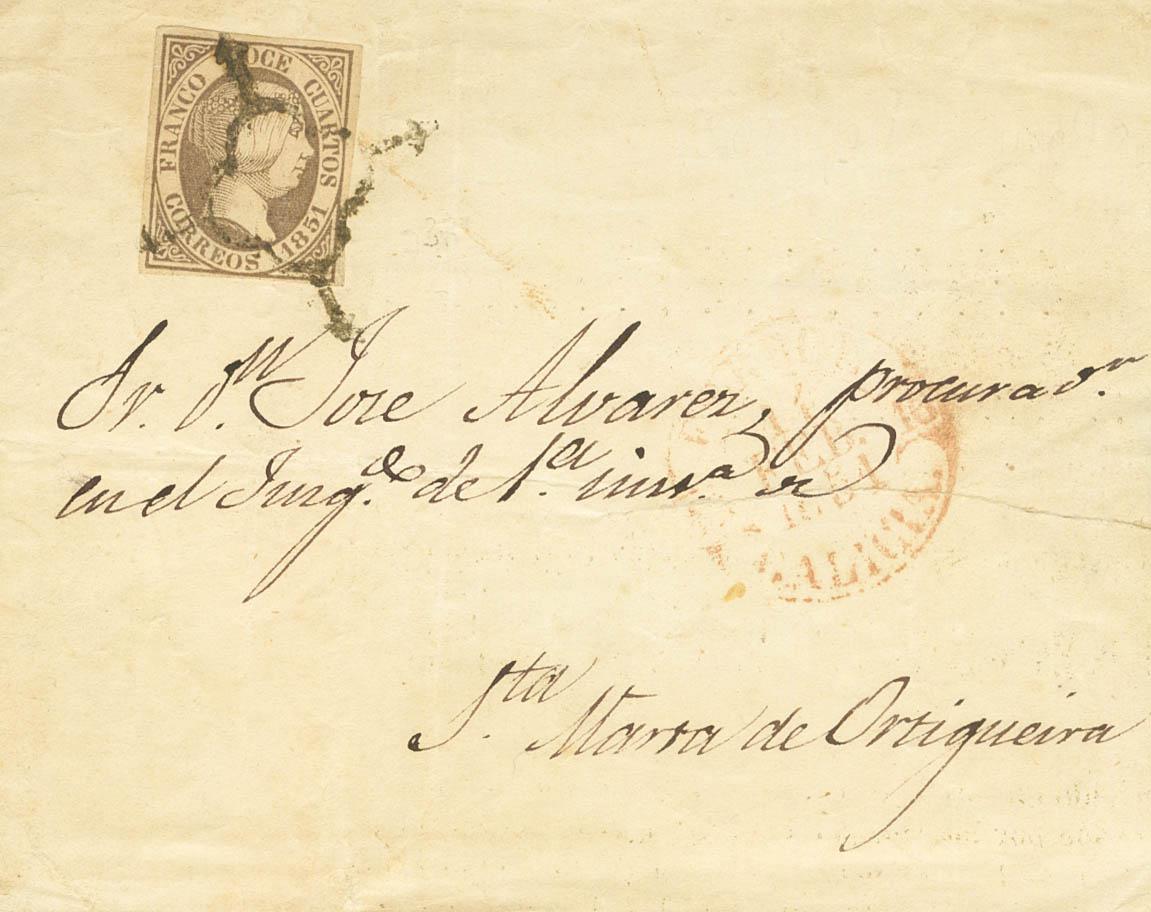 FRANCO DOCE CUARTOS
CORREOS 1851
Sr. Dn. Jose Alvarez, procurador.
en el Juzg.do de 1.a inst.a de
S.ta Marta de Ortigueira
1851
GALICIA.